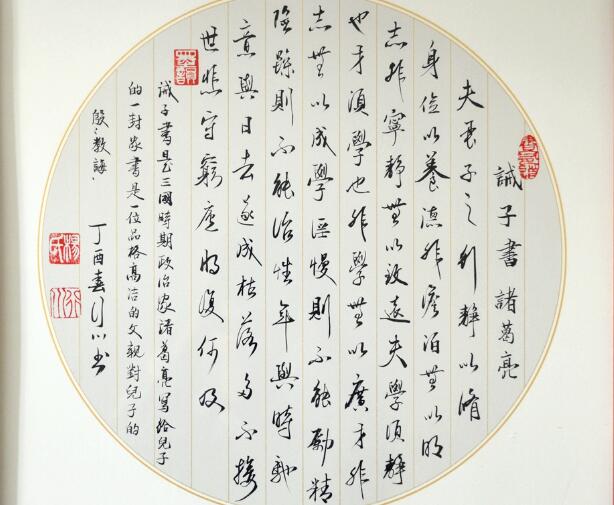 誡子書 諸葛亮
夫君子之行靜以脩
身儉以養德非澹泊無以明
志非寧靜無以致遠夫學須靜
也才須學也非學無以廣才非
志無以成學淫慢則不能勵精
險躁則不能治性年與時馳
意與日去遂成枯落多不接
世悲守窮廬將復何及
誡子書是三國時期政治家諸葛亮寫給兒子
的一封家書是一位品格高洁的父親對兒子的
殷〻教誨、
丁酉春行川书